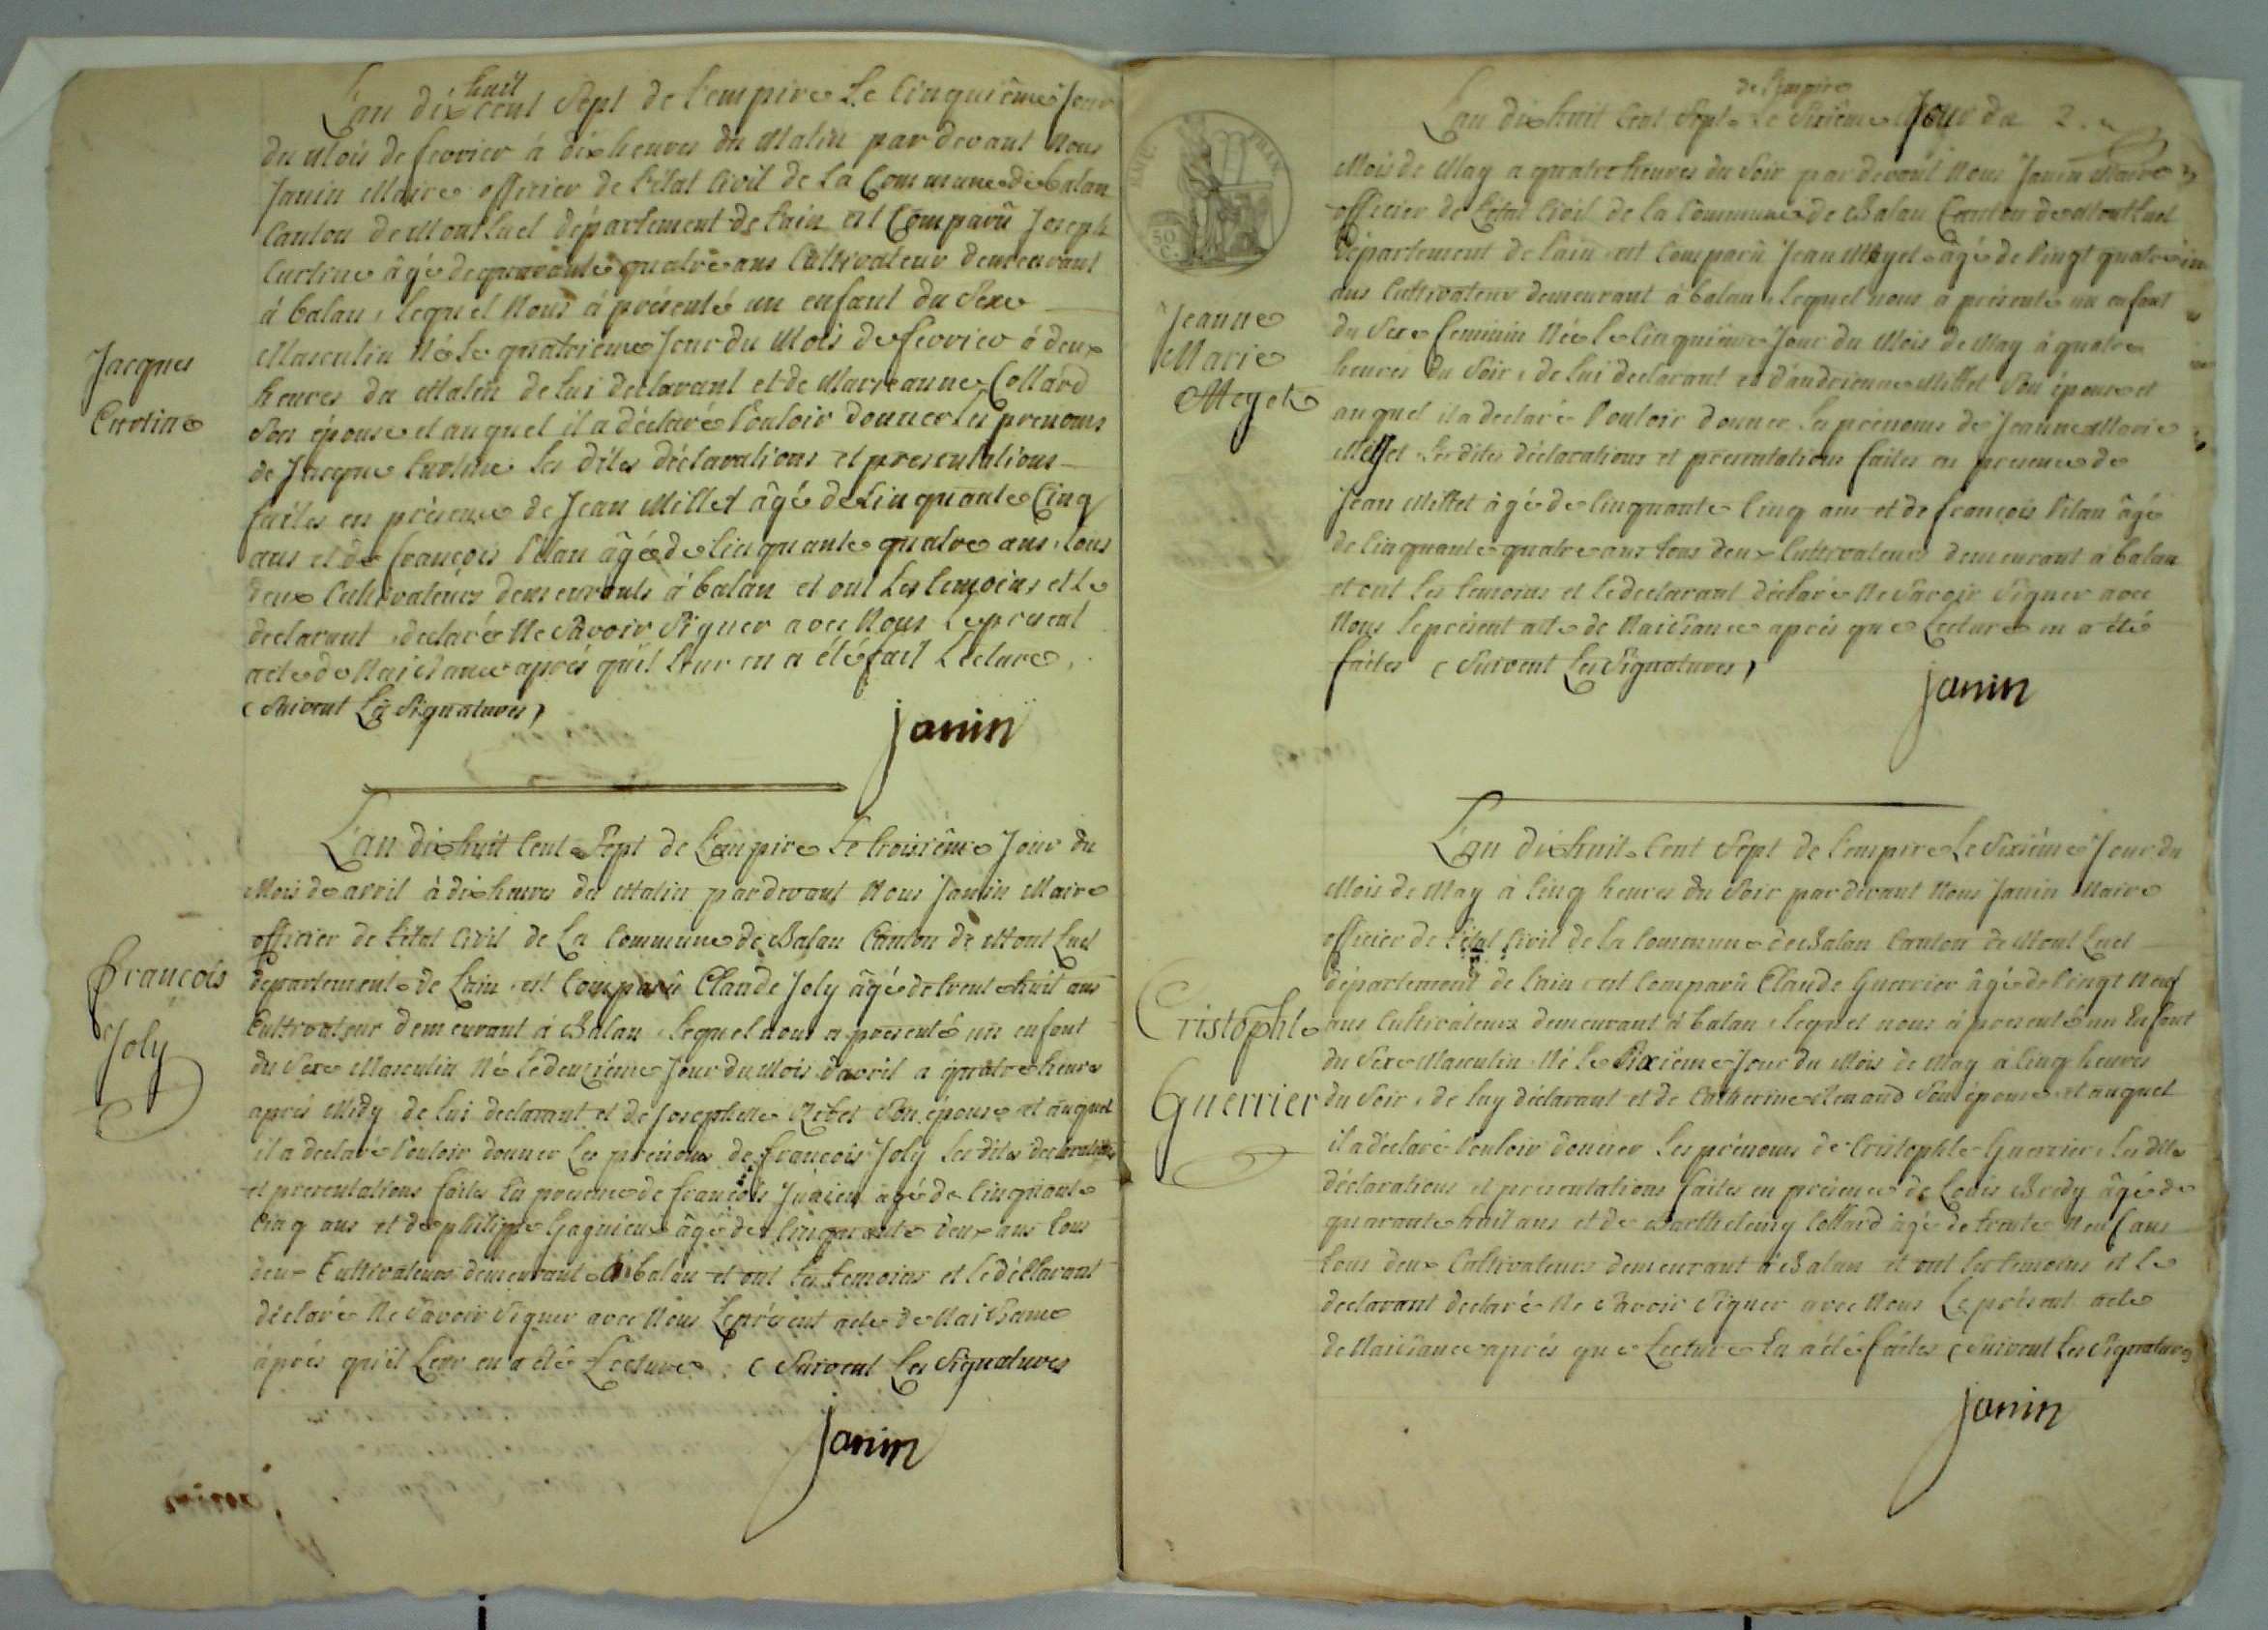 Jacques
Curtine
L'an dix huit cent Sept de l'empire Le Cinquième Jour
du Mois de fevrier à dix heures du Matin par devant Nous
Janin Maire officier de l'état Civil de la Commune de balan
Canton de Montluel département de l'ain est Comparû Joseph
Curtine âgé de quarante quatre ans Cultivateur demeurant
à balan, lequel Nous à présenté un enfant du Sexe
Masculin Né Le quatrième Jour du Mois de fevrier à deux
heures du Matin de lui declarant et de Marieanne Collard
Son épouse et auquel il a déclaré Vouloir donner les prenoms
de Jacque Curtine les dites déclarations et presentations
faites en présence de Jean Millet âgé de Cinquante Cinq
ans et de françois Vilan âgé de Cinquante quatre ans, tous
deux Cultivateurs demeurants à balan et ont Les temoins et le
declarant declaré Ne Savoir Signer avec Nous Le present
acte de Naissance après qu'il Leur en a été fait Lecture,
(Suivent Les Signatures)
janin
françois
Joly
L'an dix huit Cent Sept de L'empire Le troisième Jour du
Mois de avril à dix heures du Matin par devant Nous Janin Maire
officier de l'état Civil de La Commune de Balan Canton de Mont Luel
departement de L'ain, est Comparû Claude Joly âgé de trente huit ans
Cultivateur demeurant à Balan, lequel nous a presenté un enfant
du Sexe Masculin Né le deuxième Jour du Mois d'avril a quatre heures
aprés Midy de lui declarant et de Josephette Ribet Son épouse et auquel
il a declaré Vouloir donner Les prénoms de françois Joly Les dites declarations
et presentations faites En presence de françois Junien âgé de Cinquante
Cinq ans et de philippe Gagnieux âgé de Cinquante deux ans tous
deux Cultivateurs demeurant à balan et ont Les temoins et le déclarant
déclaré Ne Savoir Signer avec Nous Le présent acte de Naissance
après qu'il Leur en a été Lecture, (Suivent Les Signatures
janin
2.
Jeanne
Marie
Meyet
de l'empire
L'an dix huit Cent Sept Le Sixième Jour du
Mois de May a quatre heures du Soir par devant Nous Janin Maire
officier de L'état Civil de la Commune de Balan Canton de Montluel
département de l'ain est Comparû Jean Meyet âgé de Vingt quatre
ans Cultivateur demeurant à balan, lequel nous a présenté un enfant
du Sexe feminin Née le Cinquième Jour du Mois de May à quatre
heures du Soir, de lui declarant et d'andrienne Millet Son épouse et
auquel il a declaré Vouloir donner Les prénoms de Jeanne Marie
Meyet Les dites déclarations et presentations faites en presence de
Jean Millet âgé de Cinquante Cinq ans et de françois Vilan âgé
de Cinquante quatre ans tous deux Cultivateurs demeurant à balan
et ont Les temoins et le declarant déclaré Ne Savoir Signer avec
Nous le présent acte de Naissance après que Lecture en a été
faites (Suivent Les Signatures)
janin
Cristophle
Guerrier
L'an dix huit Cent Sept de l'empire Le Sixième Jour du
Mois de May à Cinq heures du Soir par devant Nous Janin Maire
officier de l'état Civil de la Commune de Balan Canton de Mont Luel
département de l'ain est Comparû Claude Guerrier âgé de Vingt Neuf
ans Cultivateur demeurant à balan, lequel nous à presenté un Enfant
du Sexe Masculin Né le Sixième Jour du Mois de May à Cinq heures
du Soir, de luy déclarant et de Catherine Renaud Son épouse et auquel
il a déclaré Vouloir donner les prénoms de Cristophle Guerrier, les dites
déclarations et présentations faites en présence de Louis Bredy âgé de
quarante huit ans et de Barthelemy Collard âgé de trente Neuf ans
tous deux Cultivateurs demeurant à Balan et ont les temoins et le
declarant declaré Ne Savoir Signer avec Nous Le présent acte
de Naissance après que Lecture En a été faites (Suivent Les Signatures)
janin